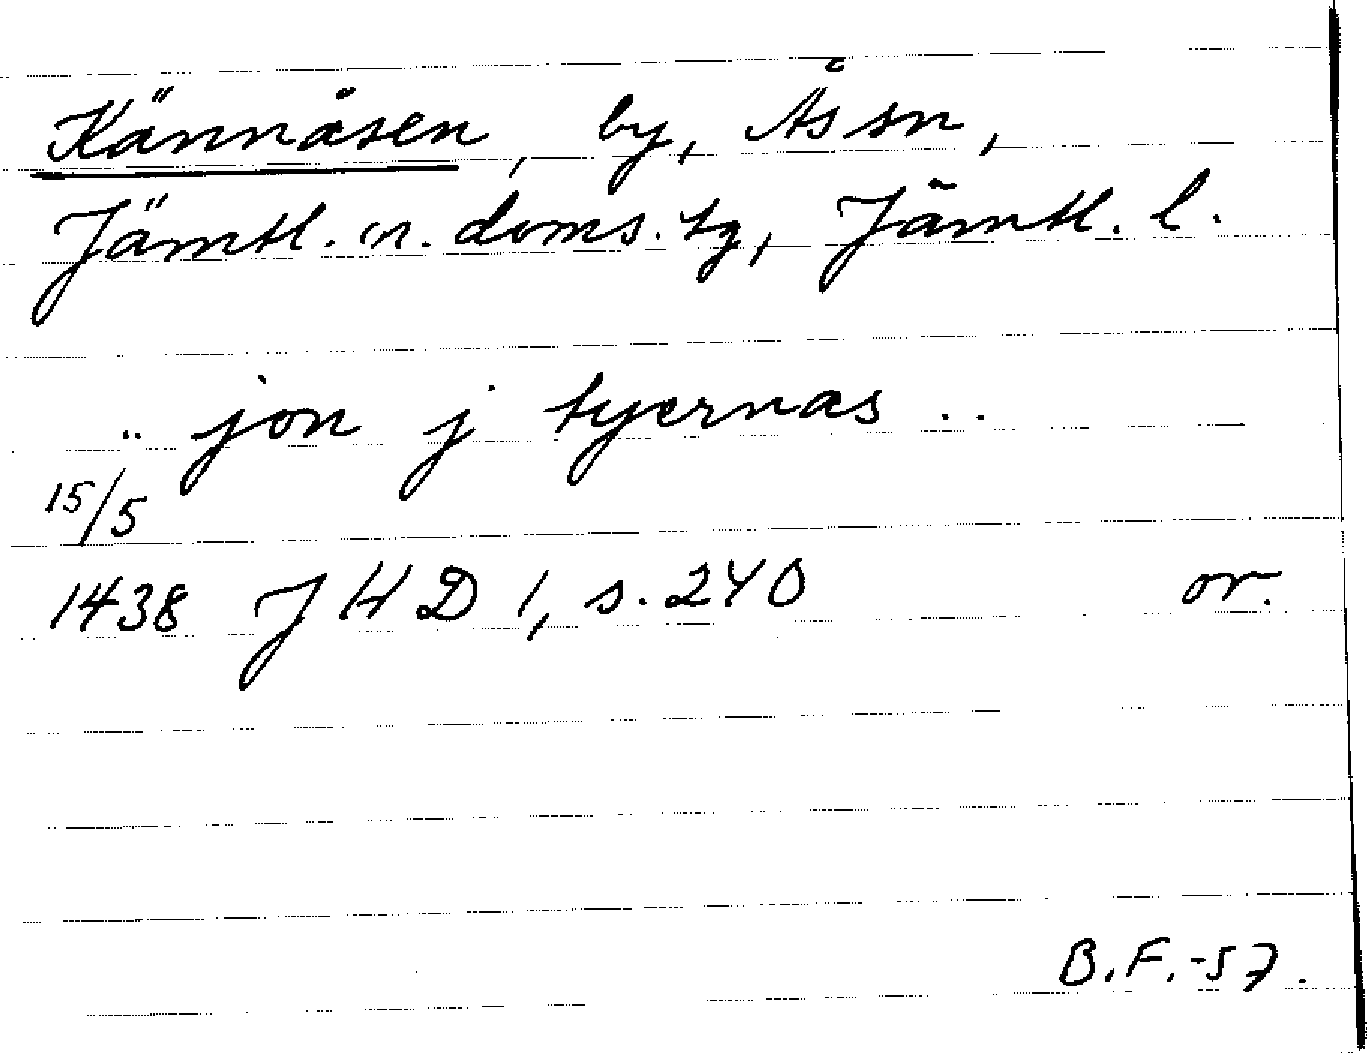 Kännåsen, by, Ås sn,
Jämtl. n. doms. tg, Jämtl. l.
.. jon j tyernas ..
15/5
1438 JHD 1, s. 240 or.
B.F.-57.